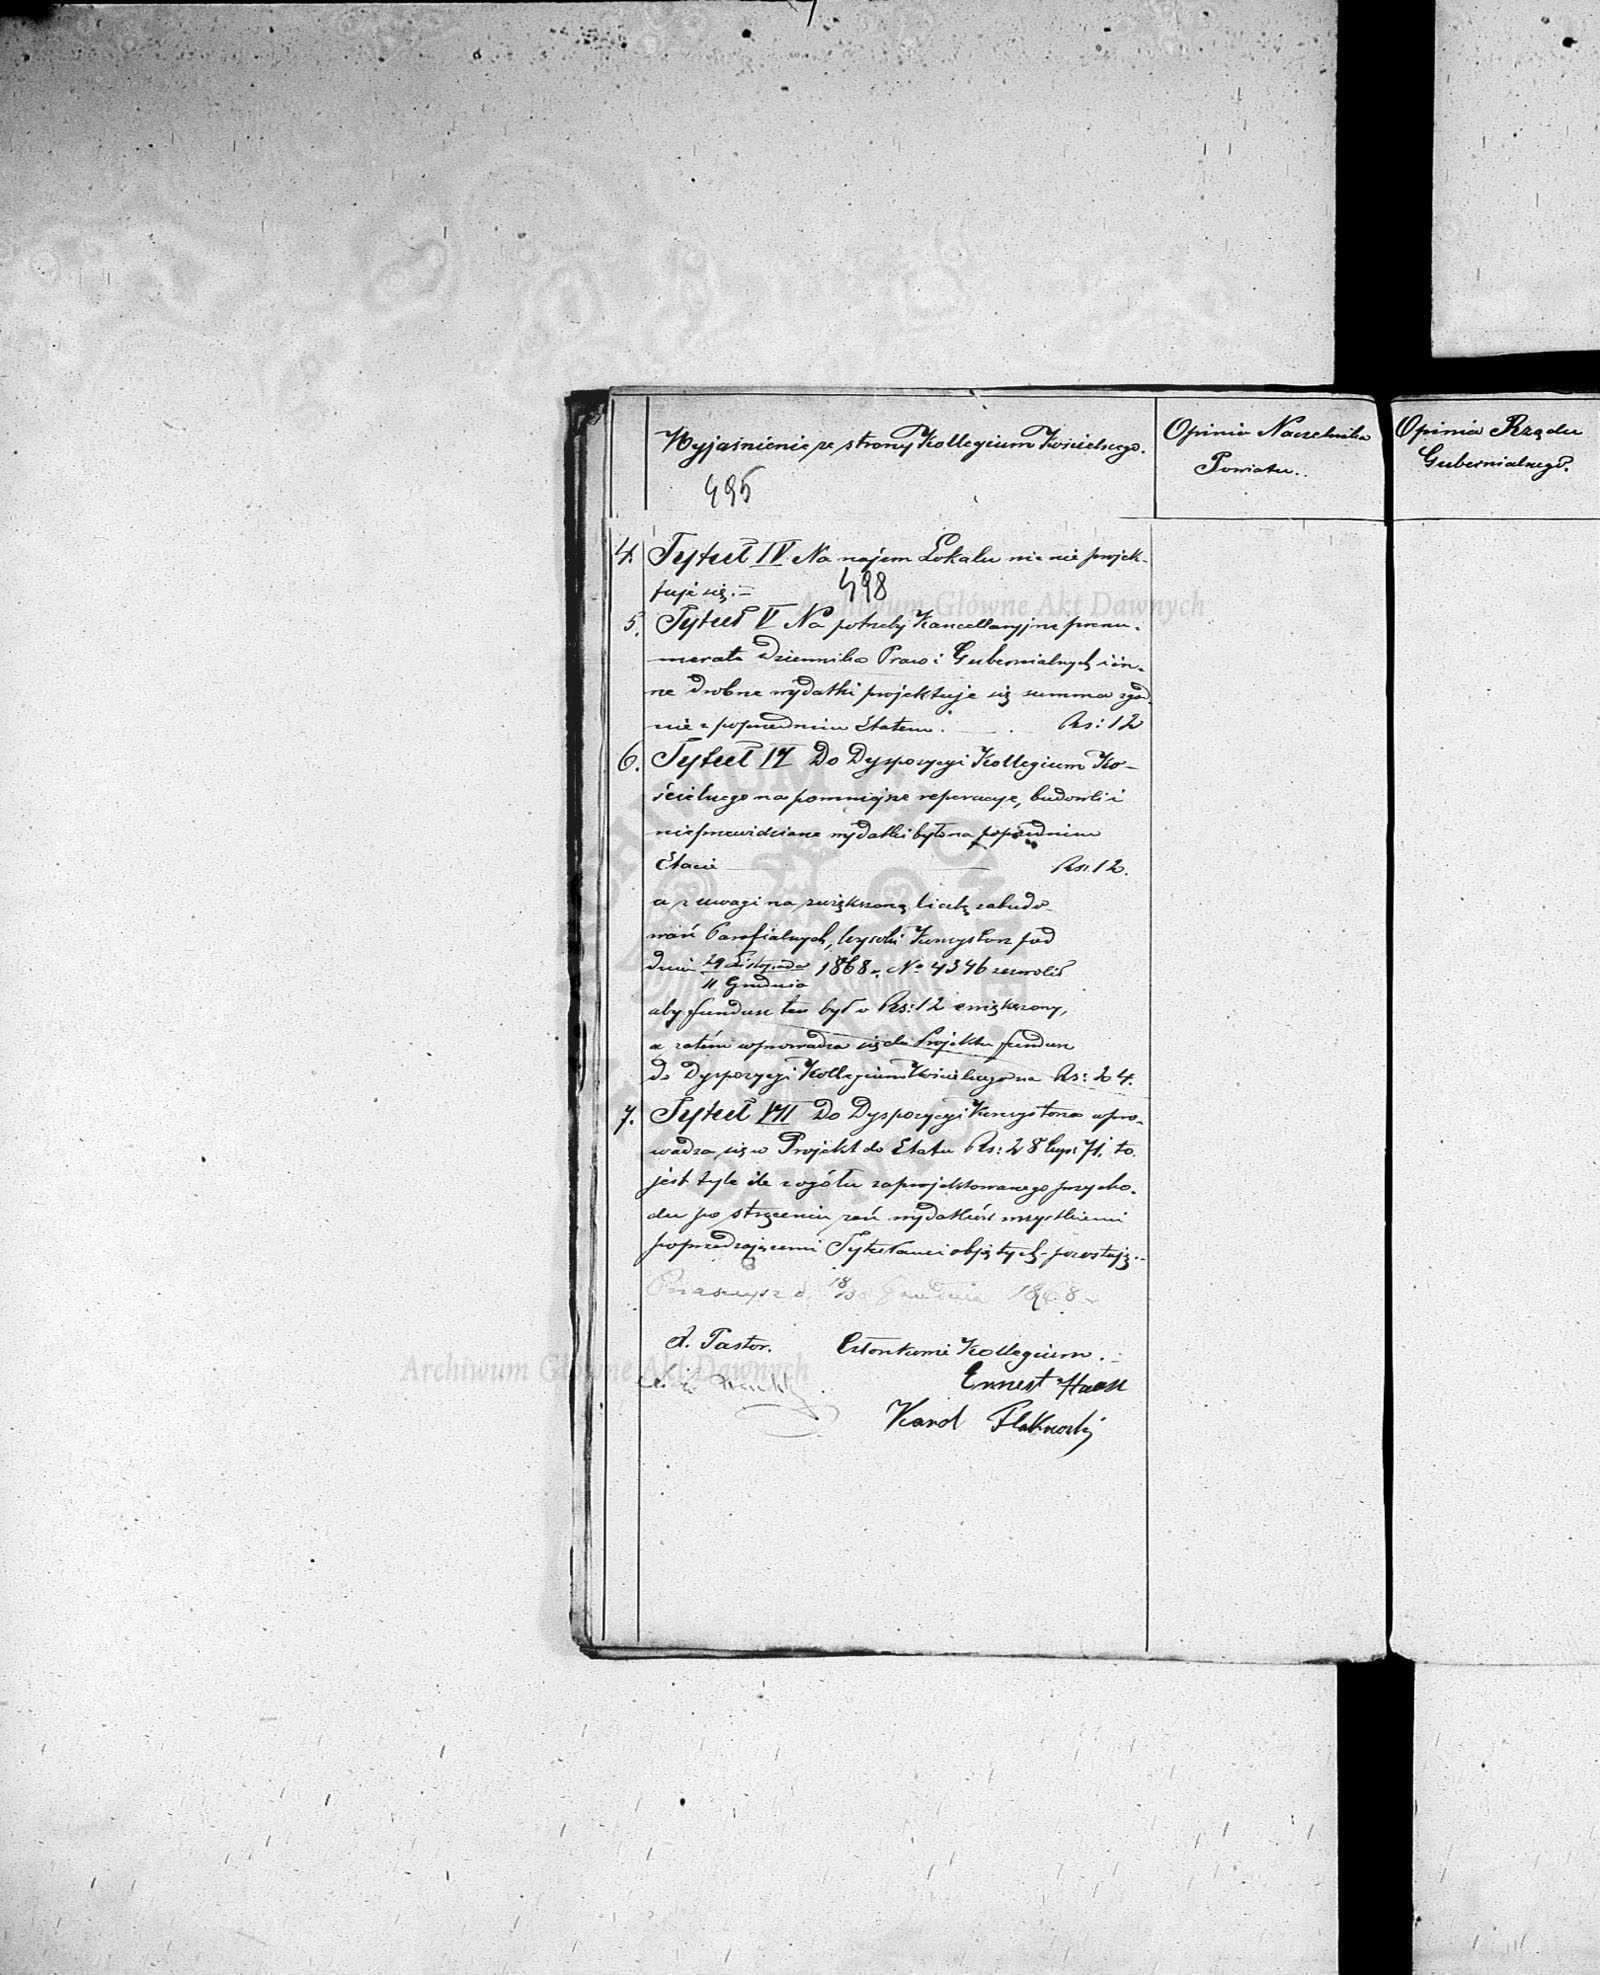 Wyjaśnienie ze strony Kollegium Kościelnego.
Opinia Naczelnika
Powiatu.
Opinia Rządu
Gubernialnego.
495
4. Tytuł IV Na najem Lokalu nic nie projek-
tuje się.
498
5. Tytuł V Na potrzeby Kancellaryjne prenu-
merata Dziennika Praw i Gubernialnych i in-
ne drobne wydatki projektuje się summa zgod-
nie z poprzednim Etatem. Rs: 12
6. Tytuł VI Do Dyspozycyi Kollegium Ko-
ścielnego na pomniejsze reperacye, budowli i
nieprzewidziane wydatki było na poprzednim
Etacie Rs. 12.
a z uwagi na zwiększoną liczbę zabudo-
wań Parafialnych, Wysoki Konsystorz pod
dniem 29 Listopada 1868 r. No 4346 zezwolił
11 Grudnia
aby fundusz ten był o Rs: 12 zwiększony,
a zatém wprowadza się do Projektu fundusz
do Dyspozycyi Kollegium Kościelnego na Rs: 24.
7. Tytuł VII Do Dyspozycyi Konsystorza wpro-
wadza się w Projekt do Etatu Rs: 28 kop: 71. to
jest tyle ile z ogółu zaprojektowanego przycho-
du po strąceniu zeń wydatków wszystkiemi
poprzedzającemi Tytułami objętych pozostaje.
18/30 Grudnia 1868 r
d. Pastor. Członkowie Kollegium.
Ernest Haase
Karol
Archiwum Główne Akt Dawnych
Archiwum Główne Akt Dawnych